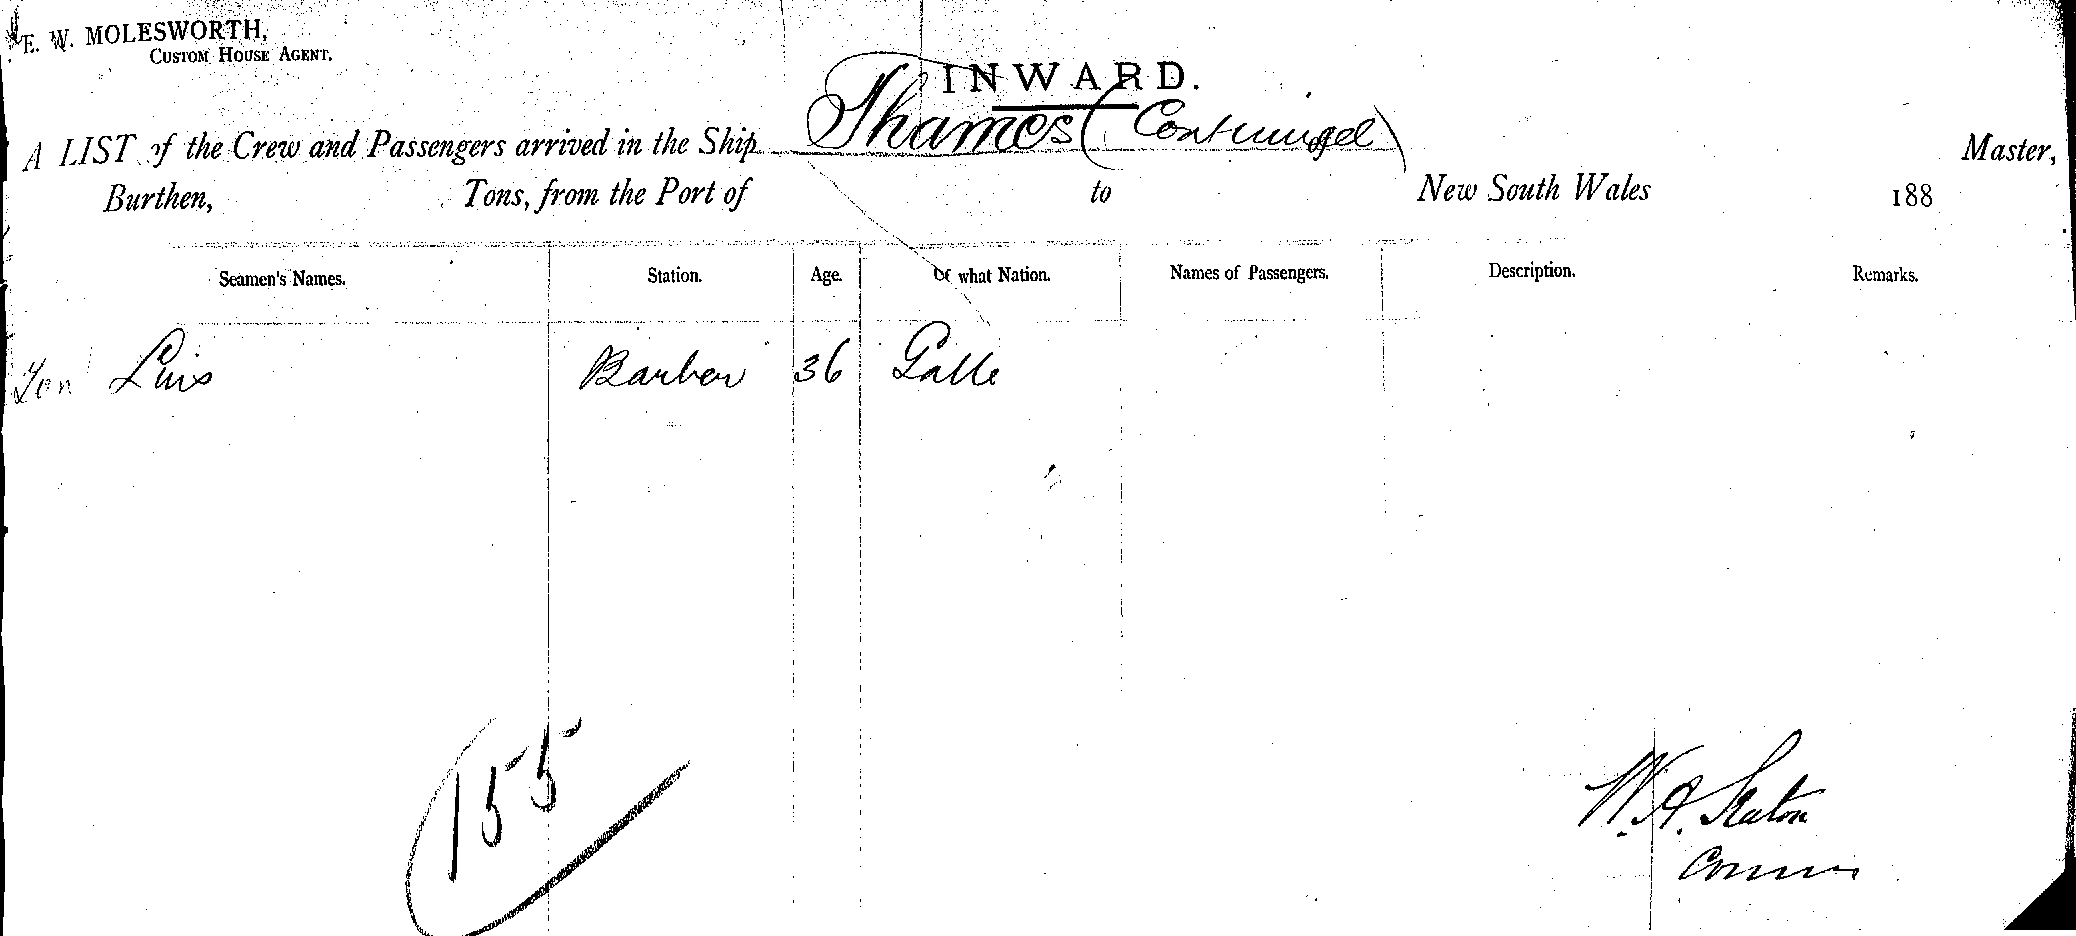 E. W. MOLESWORTH,
CUSTOM HOUSE AGENT.
INWARD.
A LIST of the Crew and Passengers arrived in the Ship Thames (Continued) Master,
Burthen, Tons, from the Port of to New South Wales 188
Seamen's Names. Station. Age. Of what Nation. Names of Passengers. Description. Remarks.
Luis Barber 36 Galle
155
W. A. Seaton
Comm